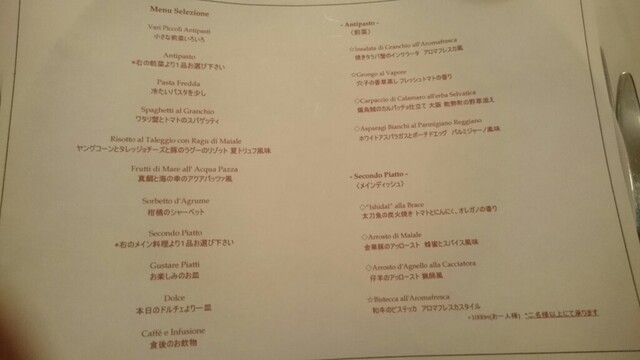 Menu Selezione
Vari Piccoli Antipasti
小さな前菜いろいろ
Antipasto
*右の前菜より1品お選び下さい
Pasta Fredda
冷たいパスタを少し
Spaghetti al Granchio
ワタリ蟹とトマトのスパゲッティ
Risotto al Taleggio con Ragu di Maiale
ヤングコーンとタレッジョチーズと豚のラグーのリゾット 夏トリュフ風味
Frutti di Mare all' Acqua Pazza
真鯛と海の幸のアクアパッツァ風
Sorbetto d'Agrume
柑橘のシャーベット
Secondo Piatto
*右のメイン料理より1品お選び下さい
Gustare Piatti
お楽しみのお皿
Dolce
本日のドルチェより一皿
Caffè e Infusione
食後のお飲物
- Antipasto -
(前菜)
☆Insalata di Granchio all'Aromafresca
焼きタラバ蟹のインサラータ アロマフレスカ風
☆Grongo al Vapore
穴子の香草蒸し フレッシュトマトの香り
◇Carpaccio di Calamaro all'erba Selvatica
障泥烏賊のカルパッチョ仕立て 大阪 能勢町の野草添え
◇Asparagi Bianchi al Parmigiano Reggiano
ホワイトアスパラガスとポーチドエッグ パルミジャーノ風味
- Secondo Piatto -
(メインディッシュ)
◇"Ishidai" alla Brace
太刀魚の炭火焼き トマトとにんにく、オレガノの香り
◇Arrosto di Maiale
金華豚のアッロースト 蜂蜜とスパイス風味
◇Arrosto d'Agnello alla Cacciatora
仔羊のアッロースト 猟師風
☆Bistecca all'Aromafresca
和牛のビステッカ アロマフレスカスタイル
+1000yen(お一人様) *二名様以上にて承ります